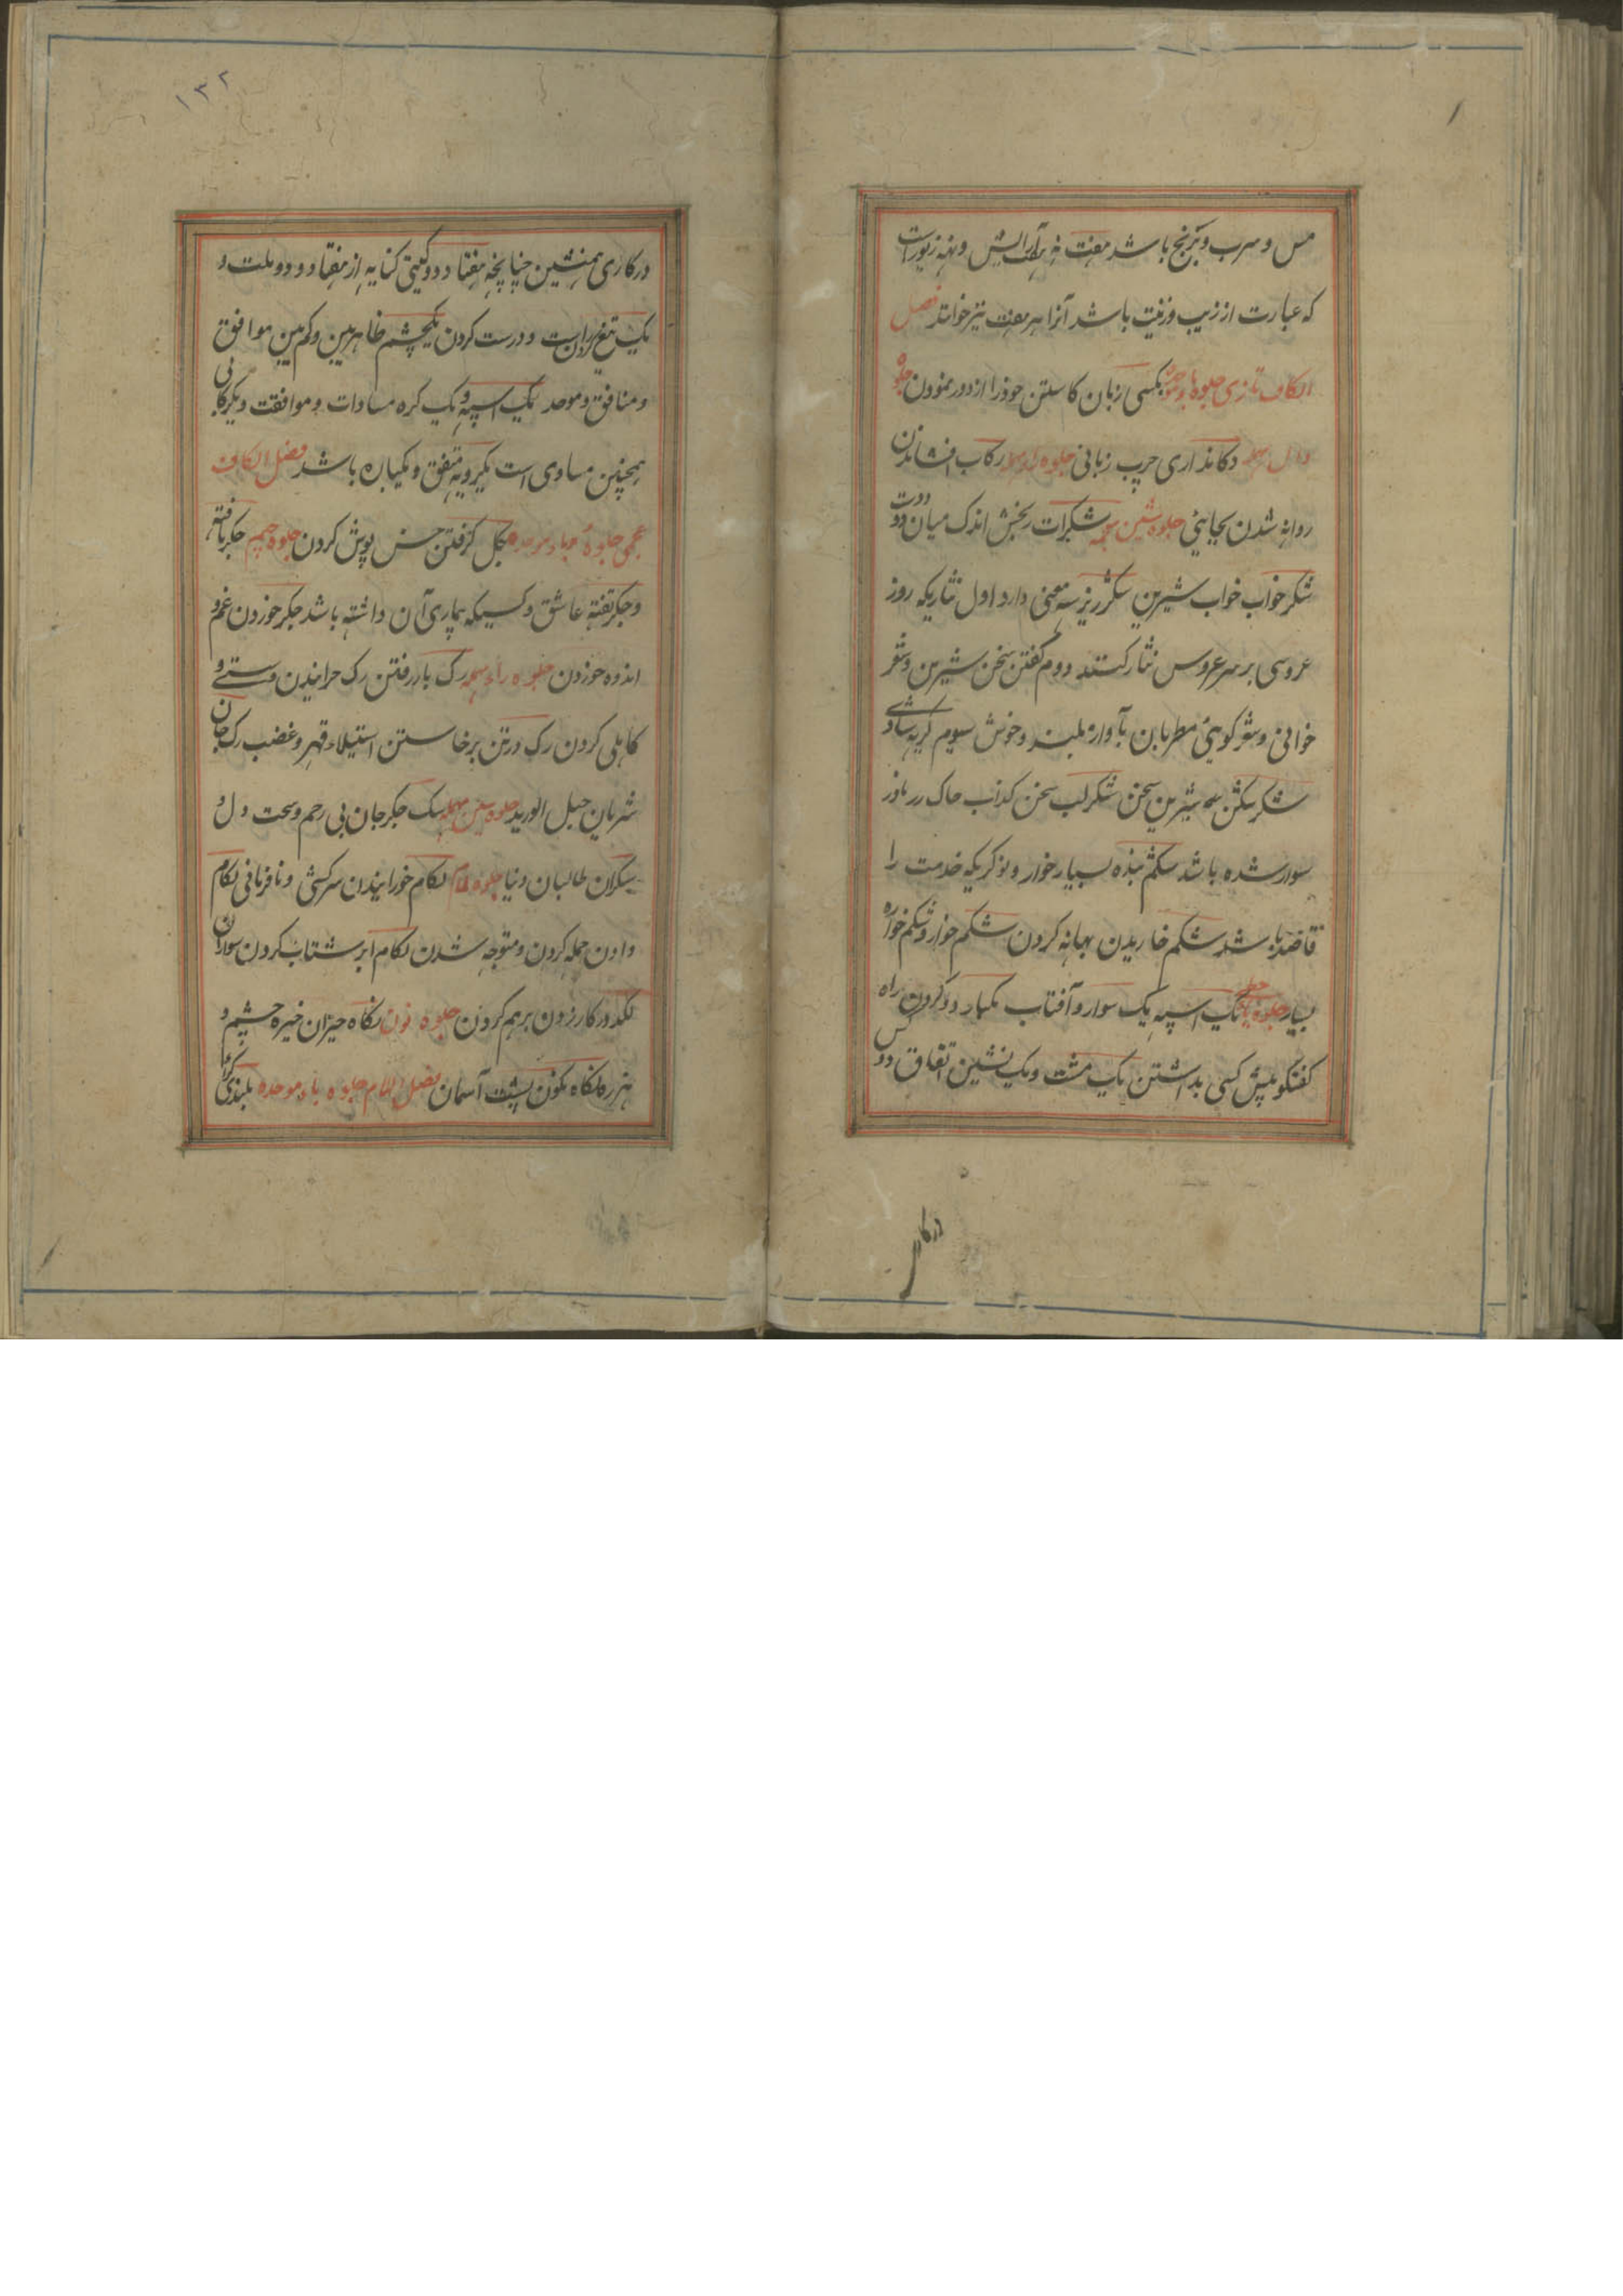 مس و سرب و برنج باشد هفت و نه آرایش و نه زیورات
که عبارت از زیب و زینت باشد آنرا هر هفت نیز خوانند فصل
الکاف تازی جلوه باء موحده بکسی زبان کاستن خود را از دور نمودن جلوه
دال مهمله دکانداری چرب زبانی جلوه راء مهمله رکاب افشاندن
روانه شدن بجایئی جلوه شین معجمه شکرات رنجش اندک میان دو دوست
شکر خواب خواب شیرین شکر ریز سه معنی دارد اول نثاریکه روز
عروسی بر سر عروس نثار کنند دوم گفتن سخن شیرین و شعر
خوانی و شعر گوئی مطربان بآواز بلند و خوش سیوم گریه شادی
شکر شکن شیرین سخن شکر لب سخن کذاب خاک
سوار شده باشد شکم بنده بسیار خوار و نوکریکه خدمت را
قاصد باشد شکم خاریدن بهانه کردن شکم خوار و شکم خواره
بسیار جلوه یاء یک اسپه یک سوار و آفتاب یکباد دو کردن راه
گفتگو پیش کسی بداشتن یک مشت و یک نشین اتفاق دو کس
درکار
۱۳۲
درکاری همنشین چنانچه هفتاد دو گیتی کنایه از هفتاد و دو ملت و
یک تیغ کردن راست و درست کردن یکچشم ظاهر بین و کم بین موافق
و منافق و موحد یک اسپه و یک کره مساوات و موافقت و یکرکابی
همچنین مساوی است یکرویه متفق و یکباره باشد فصل الکاف
عجمی جلوهٔ باء موحده بگل گرفتن خس پوش کردن جلوه جیم جگر تافته
و جگر تفته عاشق و کسیکه بیماری آن داشته باشد جگر خوردن غم و
اندوه خوردن جلوه راء مهمله رگ باز رفتن رگ خرانیدن و سستی و
کاهلی کردن رگ در تن برخاستن استیلاء قهر و غضب رگ جان
شریان حبل الورید جلوه سین مهمله سگ جگر جان بی رحم و سخت دل و
سگران طالبان دنیا جلوه لام لگام خورانیدن سرکشی و نافرمانی لگام
دادن حمله کردن و متوجه شدن لگام ابر شتاب کردن سواران
لگد در کار زدن برهم کردن جلوه نون نگاه حیزان خیره چشم و
هرزه نگاه نگون پشت آسمان فصل اللام جلوه باء موحده بلندی گرا